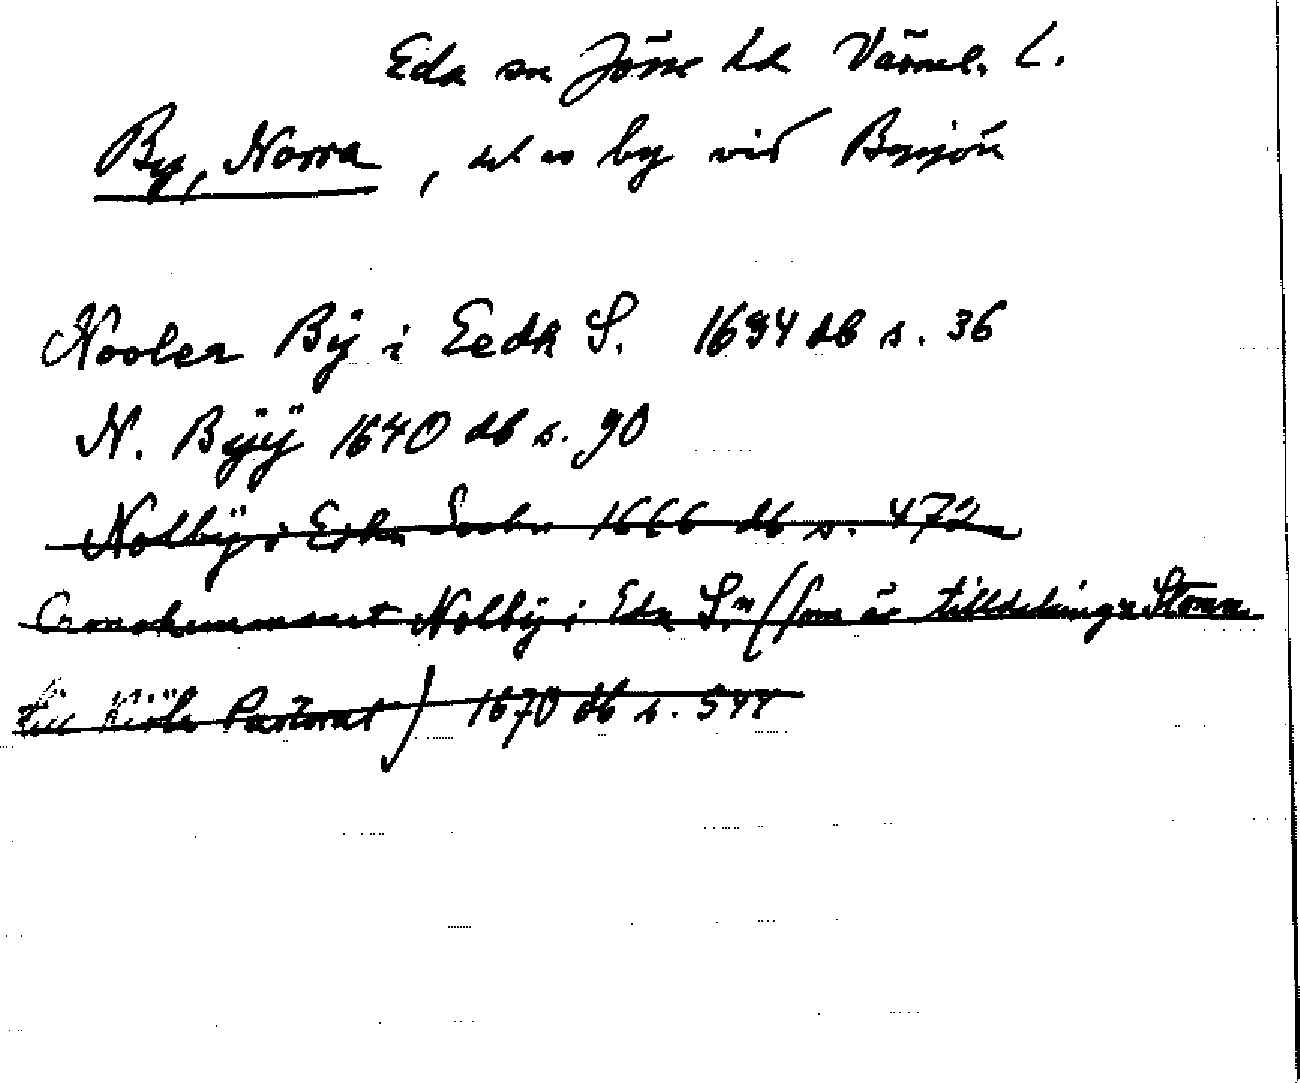 Eda sn Jösse hd Värml. l.
By, Norra, del av by vid Bysjön
Nooler Bÿ i Eeda S. 1694 db s. 36
N. Bÿÿ 1640 db s. 90
Nolbÿ i Eda Sochn 1666 db s. 472
Cronohemmanet Nolbÿ i Eda S.n (som är tilldelningz Stomn
till Kiöla Pastorat) 1670 db s. 544